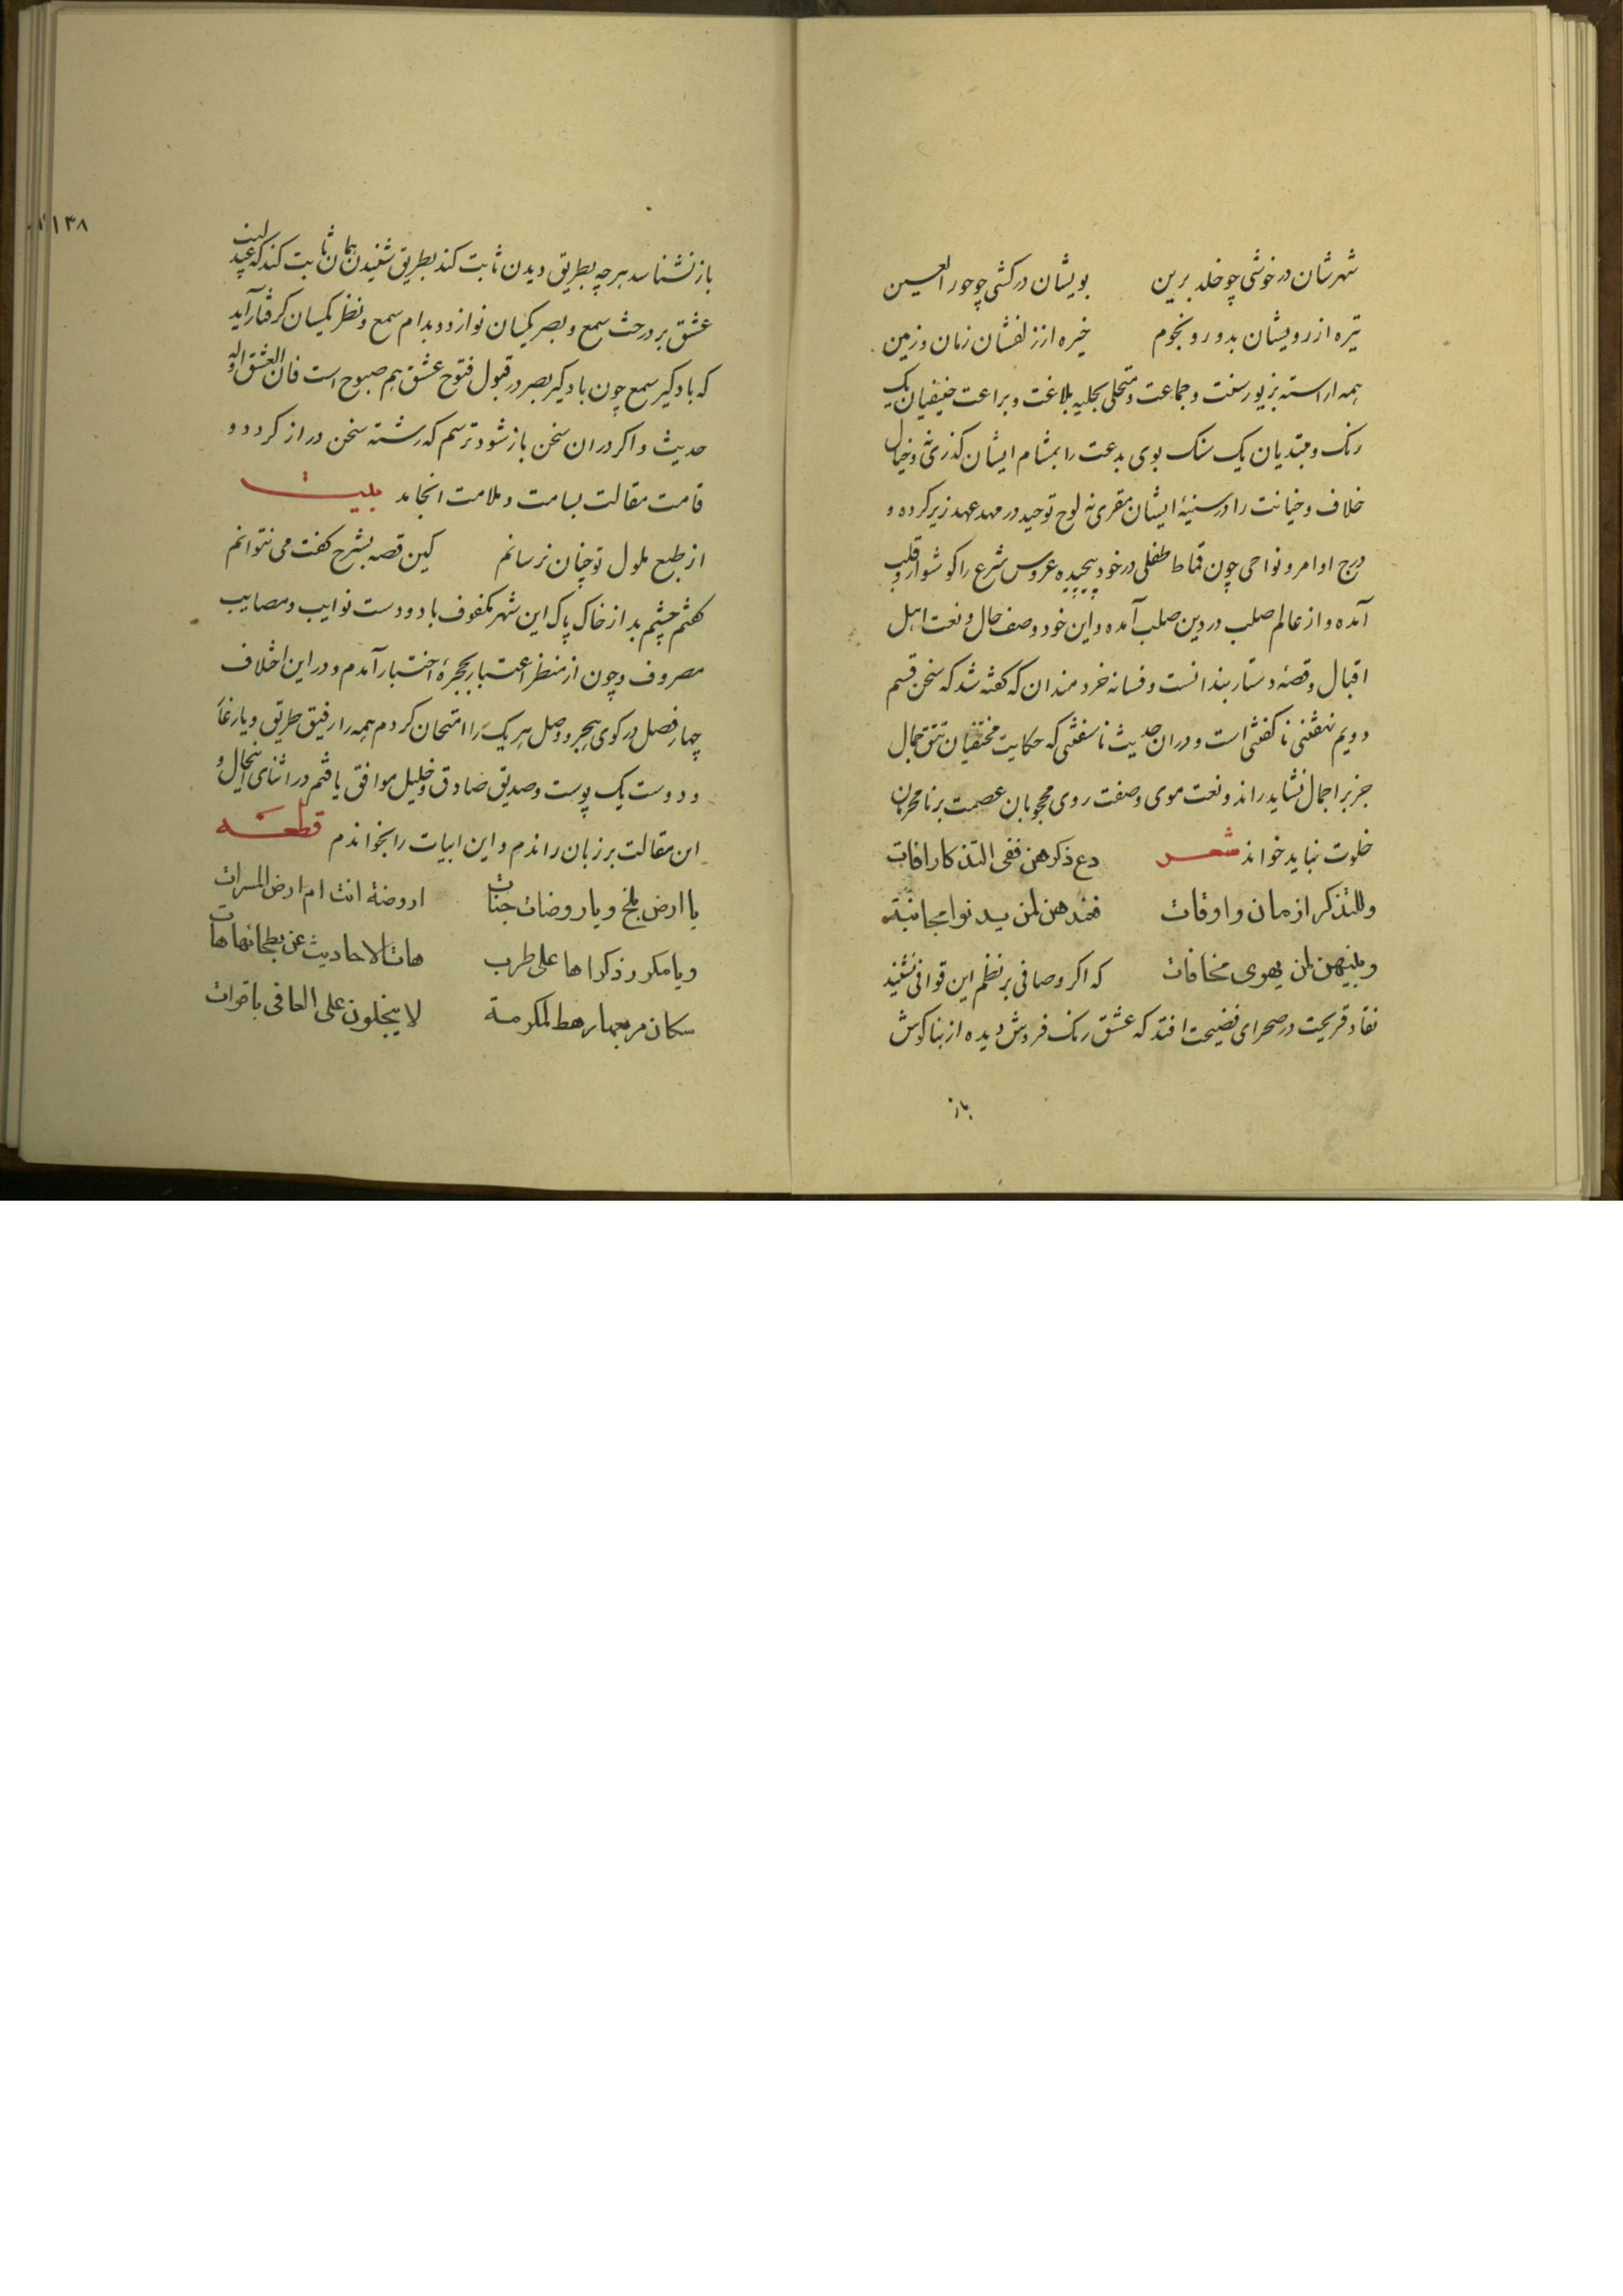 شهرشان در خوشی چو خلد برین بویشان در کشی چو حور العین
تیره از رویشان بدور و نجوم خیره از زلفشان زمان و زمین
همه اراسته بزیور سنت و جماعت و متحلی بحلیه بلاغت و براعت حنیفیان یک
رنک و مبتدیان یک سنک بوی بدعت را بمشام ایشان کذری نه و خیال
خلاف و خیانت را در سنیهٔ ایشان مقری نه لوح توحید در مهد عهد زیر کرده و
درج اوامر و نواحی چون قماط طفلی در خود پیچیده عروس شرع را کوشوار و قلب
آمده و از عالم صلب در دین صلب آمده و این خود وصف حال و نعت اهل
اقبال و قصهٔ دستار بندانست و فسانه خردمندان که کفته شد که سخن قسم
دویم نهفتنی نا کفتنی است و دران حدیث نا سفتنی که حکایت مختفیان تتق جمال
جز بر اجمال نشاید راند و نعت موی و صفت روی محجوبان عصمت بر نا محرمان
خلوت نباید خواند شعر دع ذکرهن ففی التذکار افات
وللتذکر ازمان واوقات فعندهن لمن یدنوا مجانبته
وبینهن لمن یهوی مخافات که اکر وصافی بر نظم این قوافی نشیند
نقاد قریحت در صحرای فضیحت افتد که عشق رنک فروش دیده از بناکوش
باز
۱۳۸
باز نشناسد هرچه بطریق دیدن ثابت کند بطریق شنیدن همان ثابت کند که لیت
عشق بر درخت سمع و بصر یکسان نوازد و بدام سمع و نظر یکسان کرفتار آید
که بادکیر سمع چون بادکیر بصر در قبول فتوح عشق هم صبوح است فان العشق اوله
حدیث و اکر دران سخن باز شود ترسم که رشته سخن دراز کردد و
قامت مقالت بسامت و ملامت انجامد بیت
از طبع ملول تو چنان ترسانم کین قصه بشرح کفت می نتوانم
کفتم چشم بد از خاک پاک این شهر مکفوف باد و دست نوایب و مصایب
مصروف و چون از منظر اعتبار بحجرهٔ اختبار آمدم و در این اختلاف
چهار فصل در کوی هجر و وصل هر یک را امتحان کردم همه را رفیق طریق و یار غار
و دوست یک پوست و صدیق صادق و خلیل موافق یافتم در اثنای اینحال و
این مقالت بر زبان راندم و این ابیات را بخواندم قطعه
یا ارض بلخ ویا روضات جنات اروضة انت ام ارض المسرات
ویا مکرر ذکراها علی طرب هات الاحادیث عن بطحائها هات
سکان مربعها رهط المکرمة لا یبخلون علی العافی باقوات